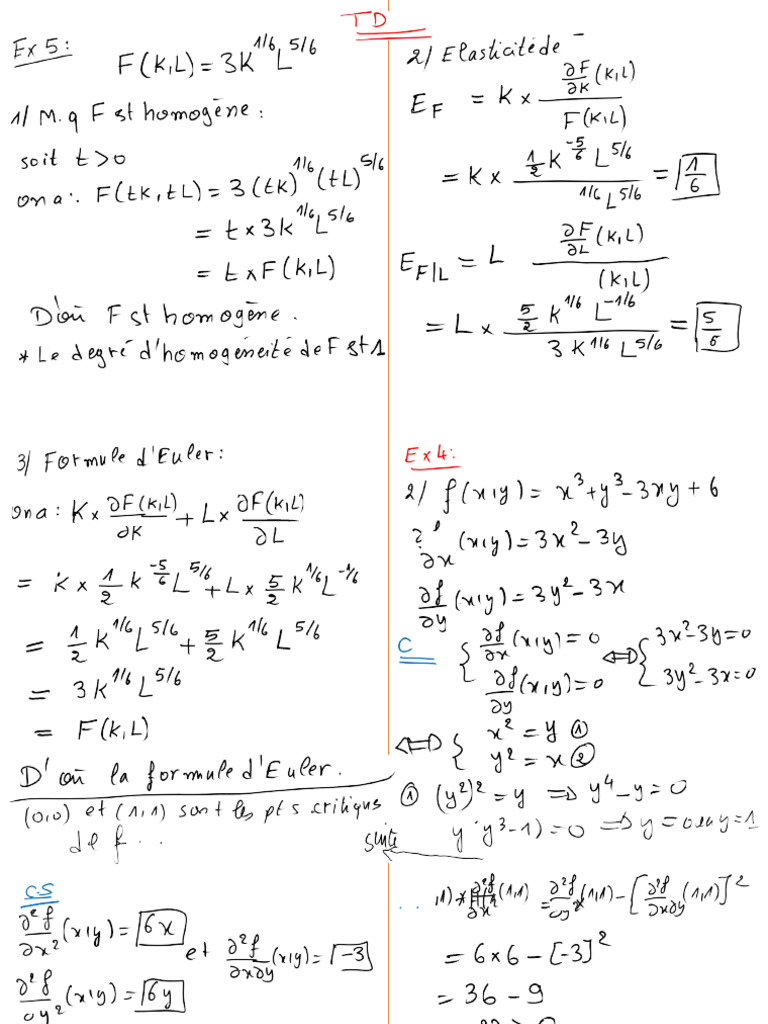 TD
Ex 5:
F(K,L) = 3K^1/6 L^5/6
1/ M.q F st homogène :
soit t > 0
on a : F(tK, tL) = 3 (tK)^1/6 (tL)^5/6
= t × 3K^1/6 L^5/6
= t × F(K,L)
D'où F st homogène.
* Le degré d'homogénéité de F st 1
2/ Elasticité de
E_F = K × ∂F/∂K (K,L) / F(K,L)
= K × 1/2 K^-5/6 L^5/6 / ^1/6 L^5/6 = 1/6
E_F/L = L ∂F/∂L (K,L) / (K,L)
= L × 5/2 K^1/6 L^-1/6 / 3 K^1/6 L^5/6 = 5/6
3/ Formule d'Euler :
on a : K × ∂F(K,L)/∂K + L × ∂F(K,L)/∂L
= K × 1/2 K^-5/6 L^5/6 + L × 5/2 K^1/6 L^-1/6
= 1/2 K^1/6 L^5/6 + 5/2 K^1/6 L^5/6
= 3K^1/6 L^5/6
= F(K,L)
D'où la formule d'Euler.
Ex 4:
2/ f(x,y) = x³ + y³ - 3xy + 6
∂f/∂x (x,y) = 3x² - 3y
∂f/∂y (x,y) = 3y² - 3x
C { ∂f/∂x (x,y) = 0 ⟺ { 3x² - 3y = 0
∂f/∂y (x,y) = 0 3y² - 3x = 0
⟺ { x² = y ①
y² = x ②
① (y²)² = y ⟹ y⁴ - y = 0
y (y³ - 1) = 0 ⟹ y = 0 ou y = 1
suite
(0,0) et (1,1) sont les pts critiqus
de f...
C.S
∂²f/∂x² (x,y) = 6x
et ∂²f/∂x∂y (x,y) = -3
∂²f/∂y² (x,y) = 6y
,1) * ∂²f/∂x² (1,1) = ∂²f/∂y² × (1,1) - [∂²f/∂x∂y (1,1)]²
= 6 × 6 - [-3]²
= 36 - 9